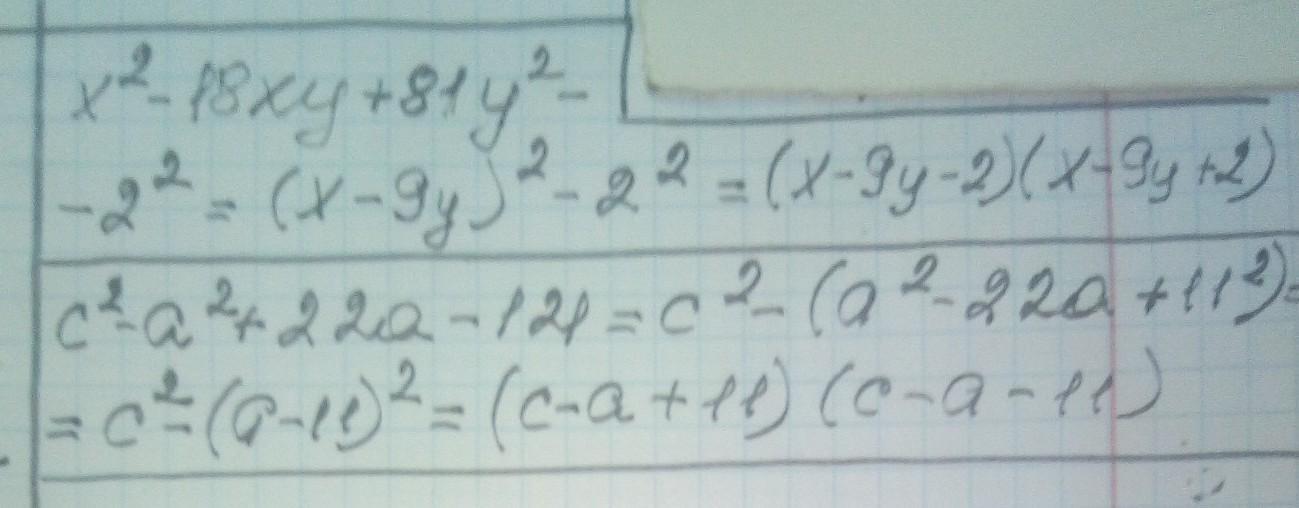 x² - 18xy + 81y² -
- 2² = (x - 9y)² - 2² = (x - 9y - 2)(x - 9y + 2)
c² - a² + 22a - 121 = c² - (a² - 22a + 11²) =
= c² - (a - 11)² = (c - a + 11) (c - a - 11)